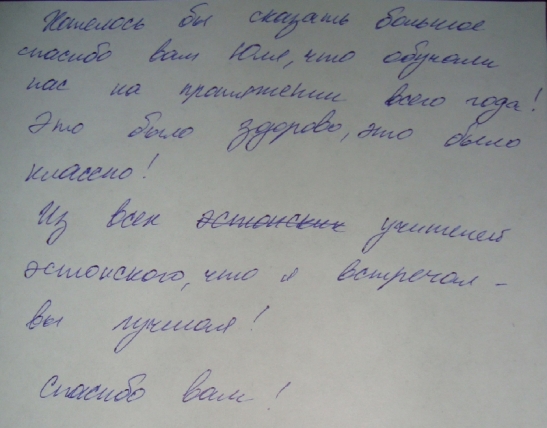 Хотелось бы сказать большое
спасибо вам Юля, что обучали
нас на протяжении всего года!
Это было здорово, это было
классно!
Из всех эстонских учителей
эстонского, что я встречал –
вы лучшая!
Спасибо вам!